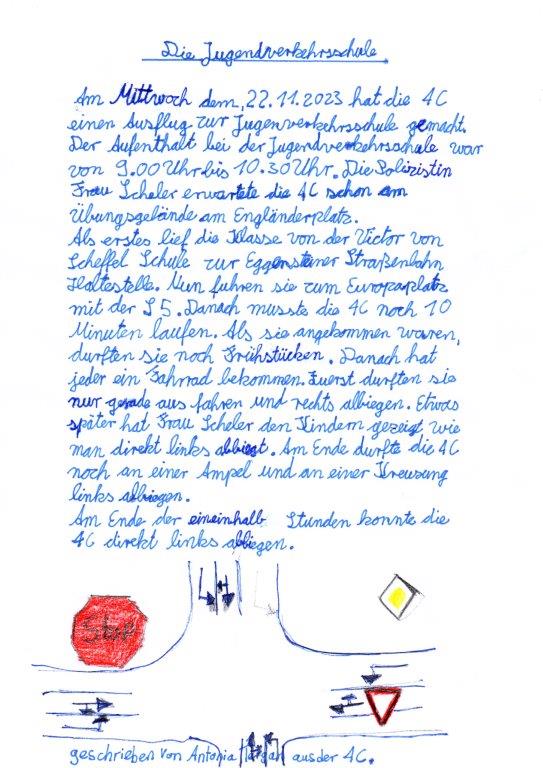 Die Jugendverkehrsschule
Am Mittwoch dem, 22.11.2023 hat die 4C
einen Ausflug zur Jugenverkehrsschule gemacht.
Der Aufenthalt bei der Jugendverkehrsschule war
von 9.00 Uhr bis 10.30 Uhr. Die Polizistin
Frau Scheler erwartete die 4C schon am
Übungsgelände am Engländerplatz.
Als erstes lief die Klasse von der Victor von
Scheffel Schule zur Eggensteiner Straßenbahn
Haltestelle. Nun fuhren sie zum Europaplatz
mit der S5. Danach musste die 4C noch 10
Minuten laufen. Als sie angekommen waren,
durften sie noch Frühstücken. Danach hat
jeder ein Fahrrad bekommen. Zuerst durften sie
nur gerade aus fahren und rechts abbiegen. Etwas
später hat Frau Scheler den Kindern gezeigt wie
man direkt links abbiegt. Am Ende durfte die 4C
noch an einer Ampel und an einer Kreuzung
links abbiegen.
Am Ende der eineinhalb Stunden konnte die
4C direkt links abbiegen.
Stop
geschrieben von Antonia aus der 4C.